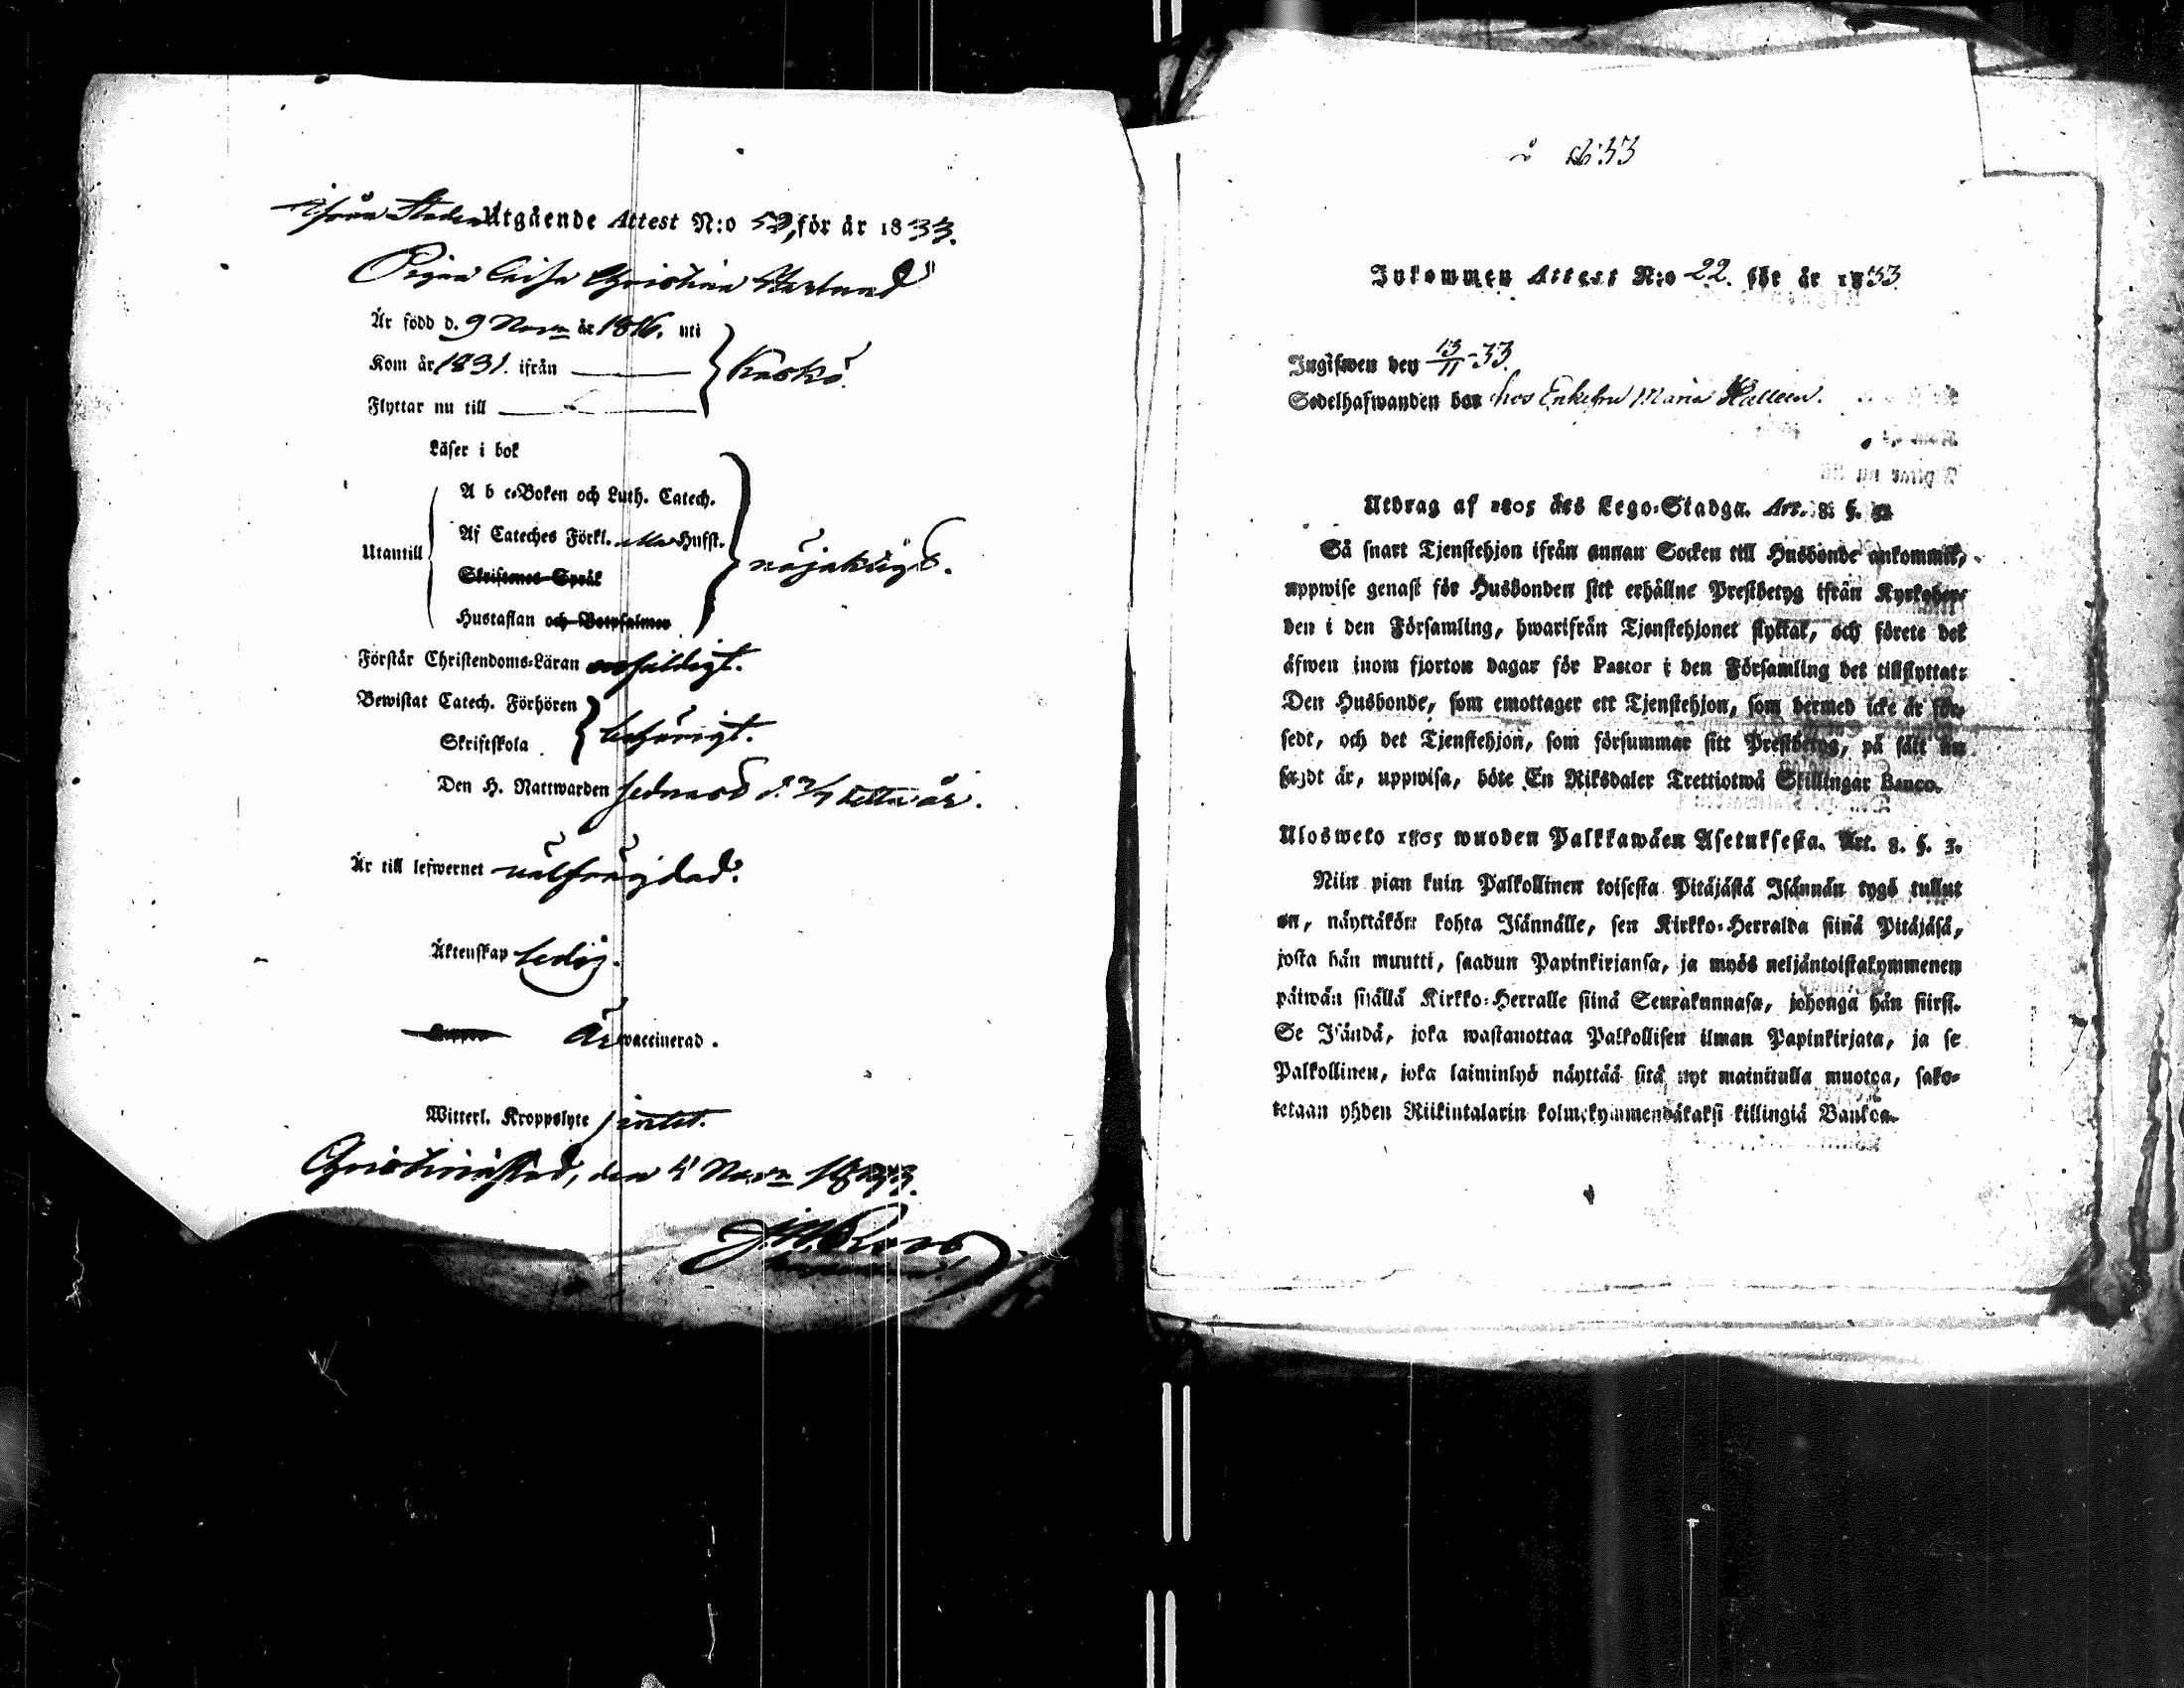 ifrån Staden Utgående Attest N:o 52, för år 1833.
Pigan Caisa Christina
Är född d. 9 Novr år 1816. uti
Kom år 1831. ifrån
Kaskö.
Flyttar nu till
Läser i bok
A b c-Boken och Luth. Catech.
Utantill
Af Cateches Förkl. Husft.
nöjaktigt.
Skriftenes Språk
Hustaflan och Botpsalmer
Förstår Christendoms-Läran
Bewistat Catech. Förhören
behörigt.
Skriftskola
Den H. Nattwarden sednast d. 7/7 detta år.
Är till lefwernet wälfrägdad.
Äktenskap ledig.
är waccinerad.
Witterl. Kroppslyte intet.
Christinestad, den 4 Novr 1833.
Inkommen Attest N:o 22. för år 1833
Ingifwen den 13/11 -33.
Sedelhafwanden bor hos Enkefru Maria
Utdrag af 1805 års Lego-Stadga. Art. 8. §.
Så snart Tjenstehjon ifrån annan Socken till Husbonde ankommit,
uppwise genast för Husbonden sitt erhållne Prestbetyg ifrån Kyrkoher-
den i den Församling, hwarifrån Tjenstehjonet flyttat, och förete det
äfwen inom fjorton dagar för Pastor i den Församling det tillflyttat:
Den Husbonde, som emottager ett Tjenstehjon, som dermed icke är för-
sedt, och det Tjenstehjon, som försummar sitt Prestbetyg, på sätt nu
sagdt är, uppwisa, böte En Riksdaler Trettiotwå Skillingar Banco.
Ulosweto 1805 wuoden Palkkawäen Asetuksesta. Art. 8. §. 3.
Niin pian kuin Palkollinen toisesta Pitäjästä Isännän tygö tullut
on, näyttäkön kohta Isännälle, sen Kirkko-Herralda siinä Pitäjäsä,
josta hän muutti, saadun Papinkirjansa, ja myös neljäntoistakymmenen
päiwän sisällä Kirkko-Herralle siinä Seurakunnasa, johonga hän siirsi.
Se Isändä, joka wastanottaa Palkollisen ilman Papinkirjata, ja se
Palkollinen, joka laiminlyö näyttää sitä nyt mainitulla muotoa, sako-
tetaan yhden Riikintalarin kolmekymmendäkaksi killingiä Bankoa.